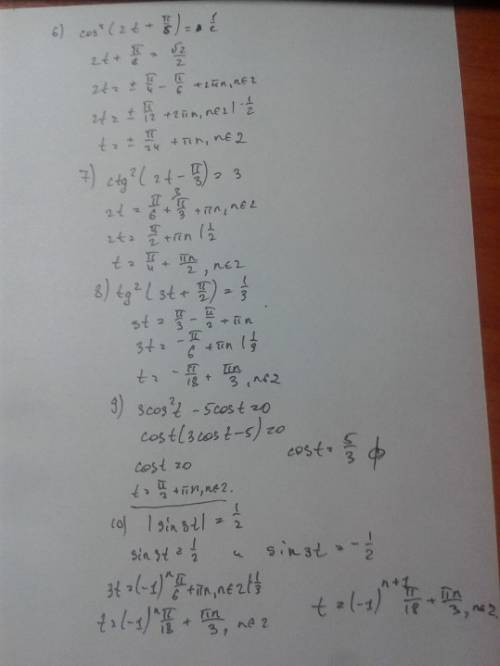 6) cos²(2t + π/8) = 1/2
2t + π/6 = √2/2
2t = ± π/4 - π/6 + 2πn, n∈Z
2t = ± π/12 + 2πn, n∈Z | · 1/2
t = ± π/24 + πn, n∈Z
7) ctg²(2t - π/3) = 3
2t = π/6 + π/3 + πn, n∈Z
2t = π/2 + πn | 1/2
t = π/4 + πn/2, n∈Z
8) tg²(3t + π/2) = 1/3
3t = π/3 - π/2 + πn
3t = - π/6 + πn | 1/3
t = - π/18 + πn/3, n∈Z
9) 3cos²t - 5cost = 0
cost(3cost - 5) = 0
cost = 0 cost = 5/3 ф
t = π/2 + πn, n∈Z.
10) |sin3t| = 1/2
sin3t = 1/2 и sin3t = - 1/2
3t = (-1)ⁿ π/6 + πn, n∈Z | 1/3
t = (-1)ⁿ π/18 + πn/3, n∈Z t = (-1)ⁿ⁺¹ π/18 + πn/3, n∈Z